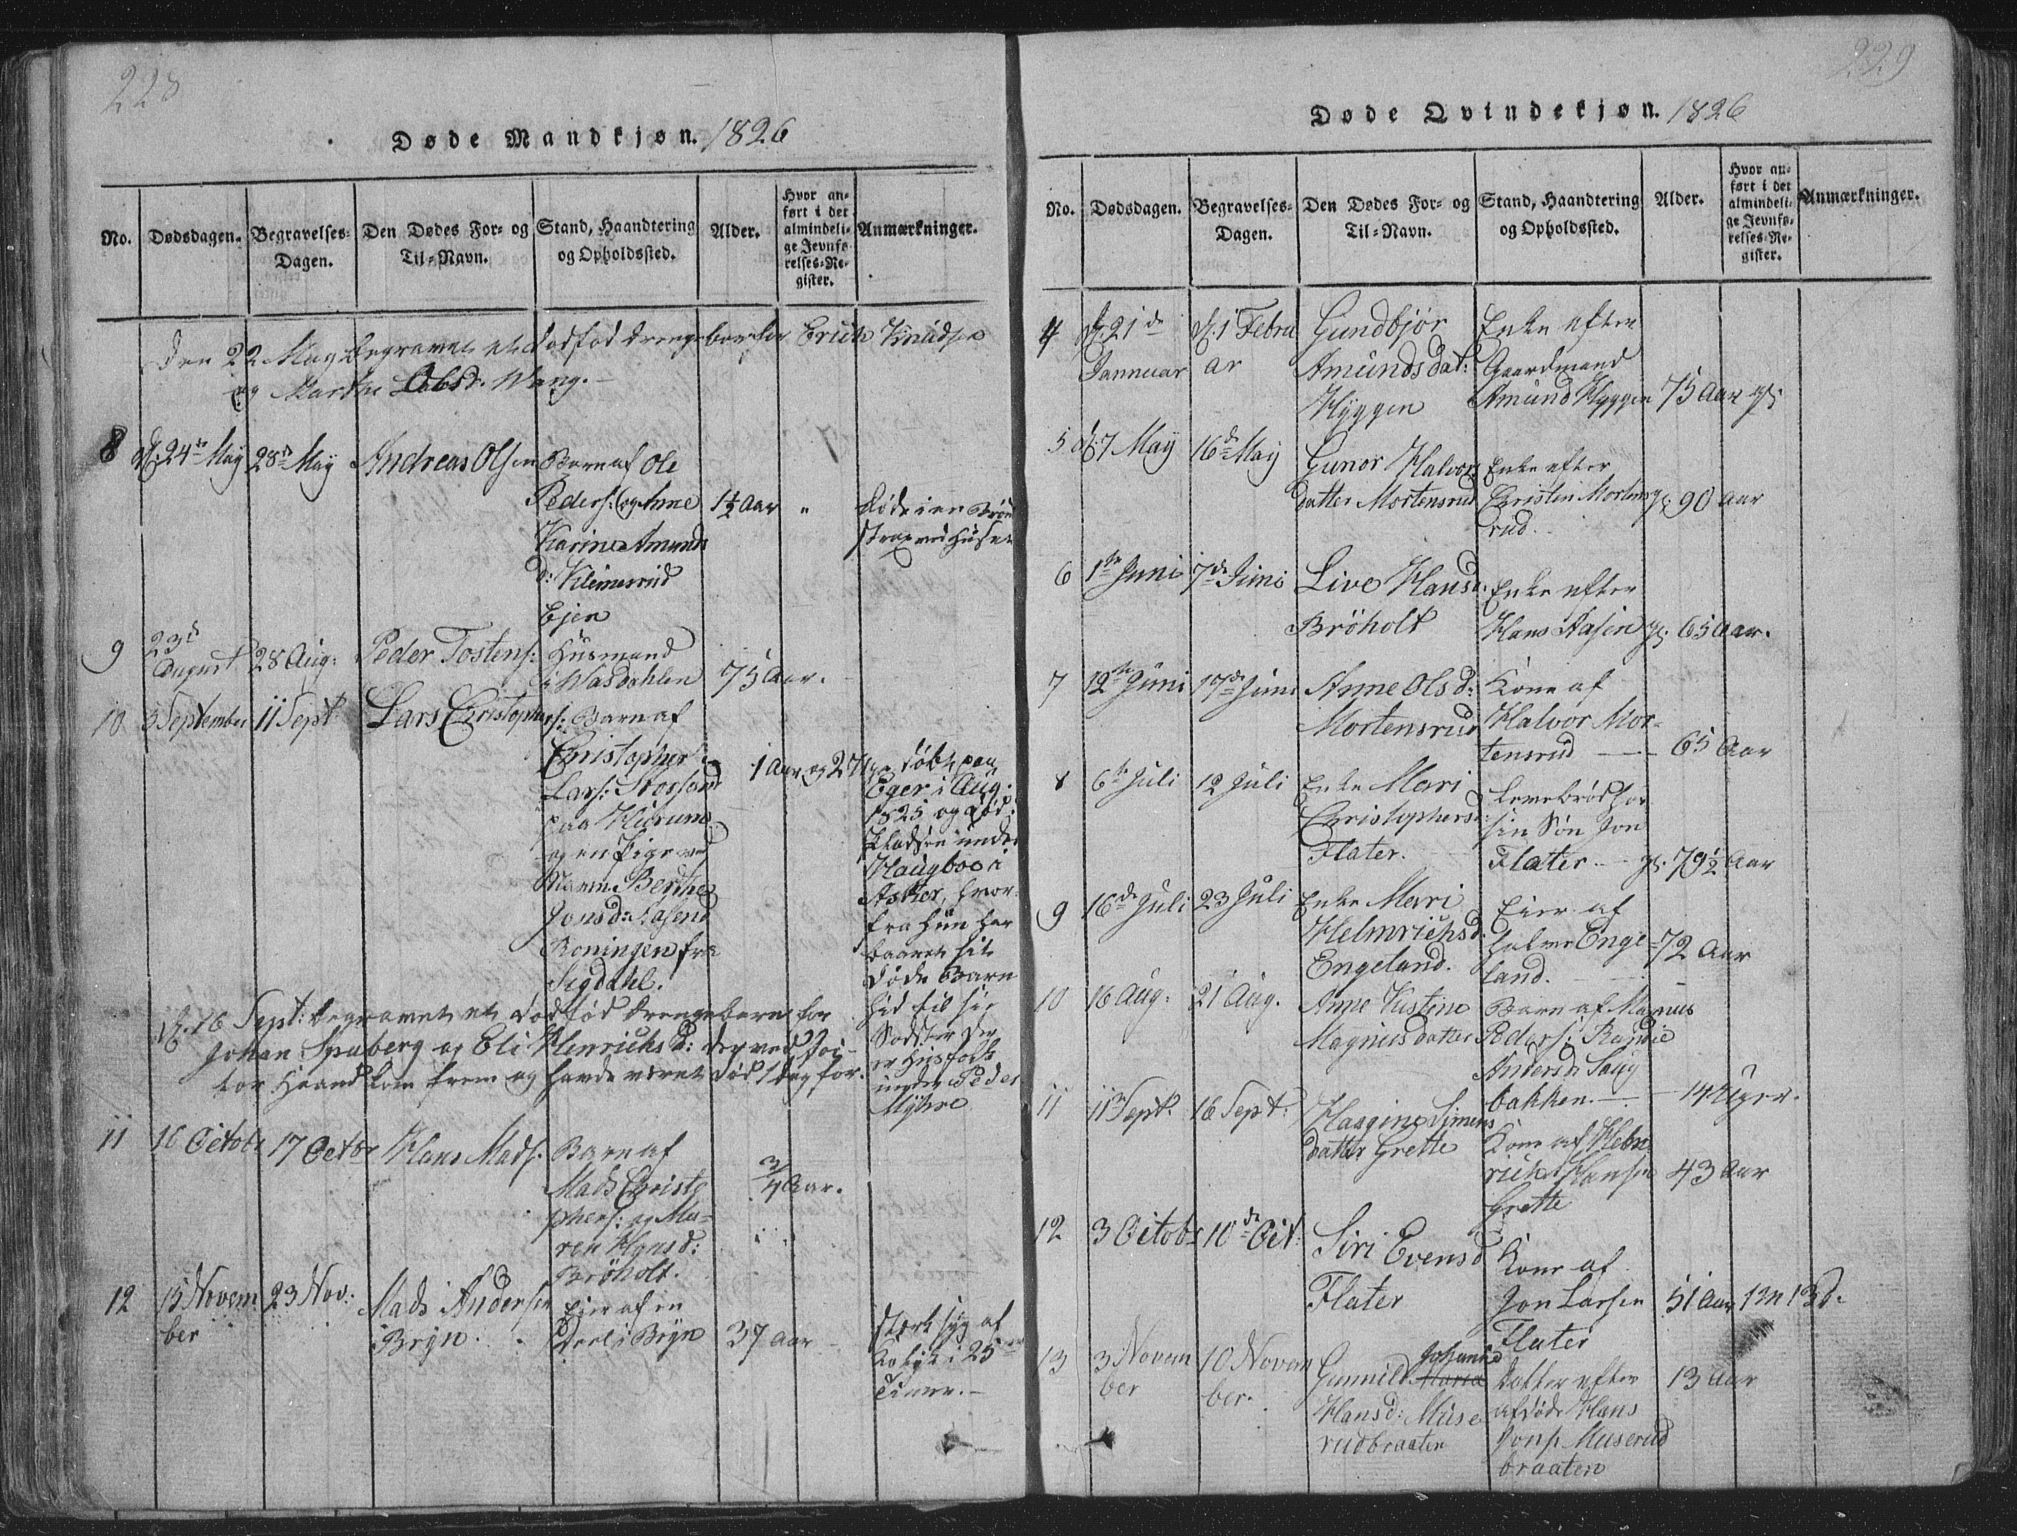 228
Døde Mandkjøn. 1826
No.
Dødsdagen.
Begravelses-
Dagen.
Den Dødes For- og
Til-Navn.
Stand, Haandtering
og Opholdssted.
Alder.
Hvor an-
ført i det
almindeli-
ge Jevnfø-
relses-Re-
gister.
Anmærkninger.
Den 22 May begravet et dødfød drengebarn for Erich Knudsen
og Marthe Wang.
8
d: 24de May
28de May
Andreas Olsen
Barn af Ole
Peders: og Anne
Karine Amunds
d: Kleimerud
Ejen
1½ Aar
"
døde i en Brønd
strax ved Huset
9
23d
August
28 Aug:
Peder Tostens:
Husmand
i Wasdahlen
75 Aar.
10
5 September
11 Sept
Lars Christophers:
Barn af
Christopher
Lars:
paa
og en Pige ved
Navn Berthe
Jonsd:
fra
Sigdahl.
1 Aar og 27
døbt paa
Eger i Aug:
1825 og død:
Pladsen under
Haugboe i
Asker, hvor-
fra hun har
baaret sit
døde Barn
hid til sin
Søster der
er Husfolk
under Peder
Myhre
d: 16 Sept: begravet et dødfød drengebarn for
Johan Spaberg og Eli Henrichs d: der ved Joi-
ter Haand kom frem og havde været død 1 dag før.
11
10 Octobr
17 Octbr
Hans Mads:
Barn af
Mads Christo
phers: og Ma-
ren Hansd:
Brøholt.
3/4 Aar.
12
15 Novem
ber
23 Nov:
Mads Andersen
Bryn.
Eier af en
Deel i Bryn
37 Aar
stærk syg af
Kolik i 25
Timer.
229
Døde Qvindekjøn. 1826
No.
Dødsdagen.
Begravelses-
Dagen.
Den Dødes For- og
Til-Navn.
Stand, Haandtering
og Opholdssted.
Alder.
Hvor an-
ført i det
almindeli-
ge Jevnfø-
relses-Re-
gister.
Anmærkninger.
4
d: 21de
Jannuar
d: 1 Febru
ar
Gundbjør
Amundsdat:
Hyggen
Enke efter
Gaardmand
Amund Hyggen
75 Aar gl:
5
d: 7 May
16de May
Gunor Halvors
datter Mortensrud
Enke efter
Christen Mortens
rud.
gl: 90 Aar
6
1te Juni
7de Juni
Live Hansd:
Brøholt
Enke efter
Hans Aasen
gl: 65 Aar.
7
12te Juni
17de Juni
Anne Olsd:
Mortensrud
Kone af
Halvor Mor-
tensrud
65 Aar
8
6te Juli
12 Juli
Enke Mari
Christophersd:
Flater.
Levebrød hos
sin Søn Jon
Flater
gl: 79½ Aar
9
16de Juli
23 Juli
Enke Mari
Helmrichsd.
Engeland.
Eier af
halve Enge-
land.
72 Aar
10
16 Aug:
21 Aug.
Anne Kistine
Magnusdatter
Barn af Magnus
Peders: Randie
Andersd: Saug
bakken.
14 Uger.
11
11 Sept.
16 Sept:
Haagine Simens
datter Grette
Kone af Helm
rich Hansen
Grette
43 Aar
12
3 Octobr
10de Oct:
Siri Evensd
Flater
Kone af
Jon Larsen
Flater
51 Aar 1 M 13 d.
13
3 Novem
ber
10 Novem
ber.
Gunnild Maria
Johanne
Hansd: Muse
rudbraaten
Datter efter
afdøde Hans
Jons: Muserud
braaten
13 Aar